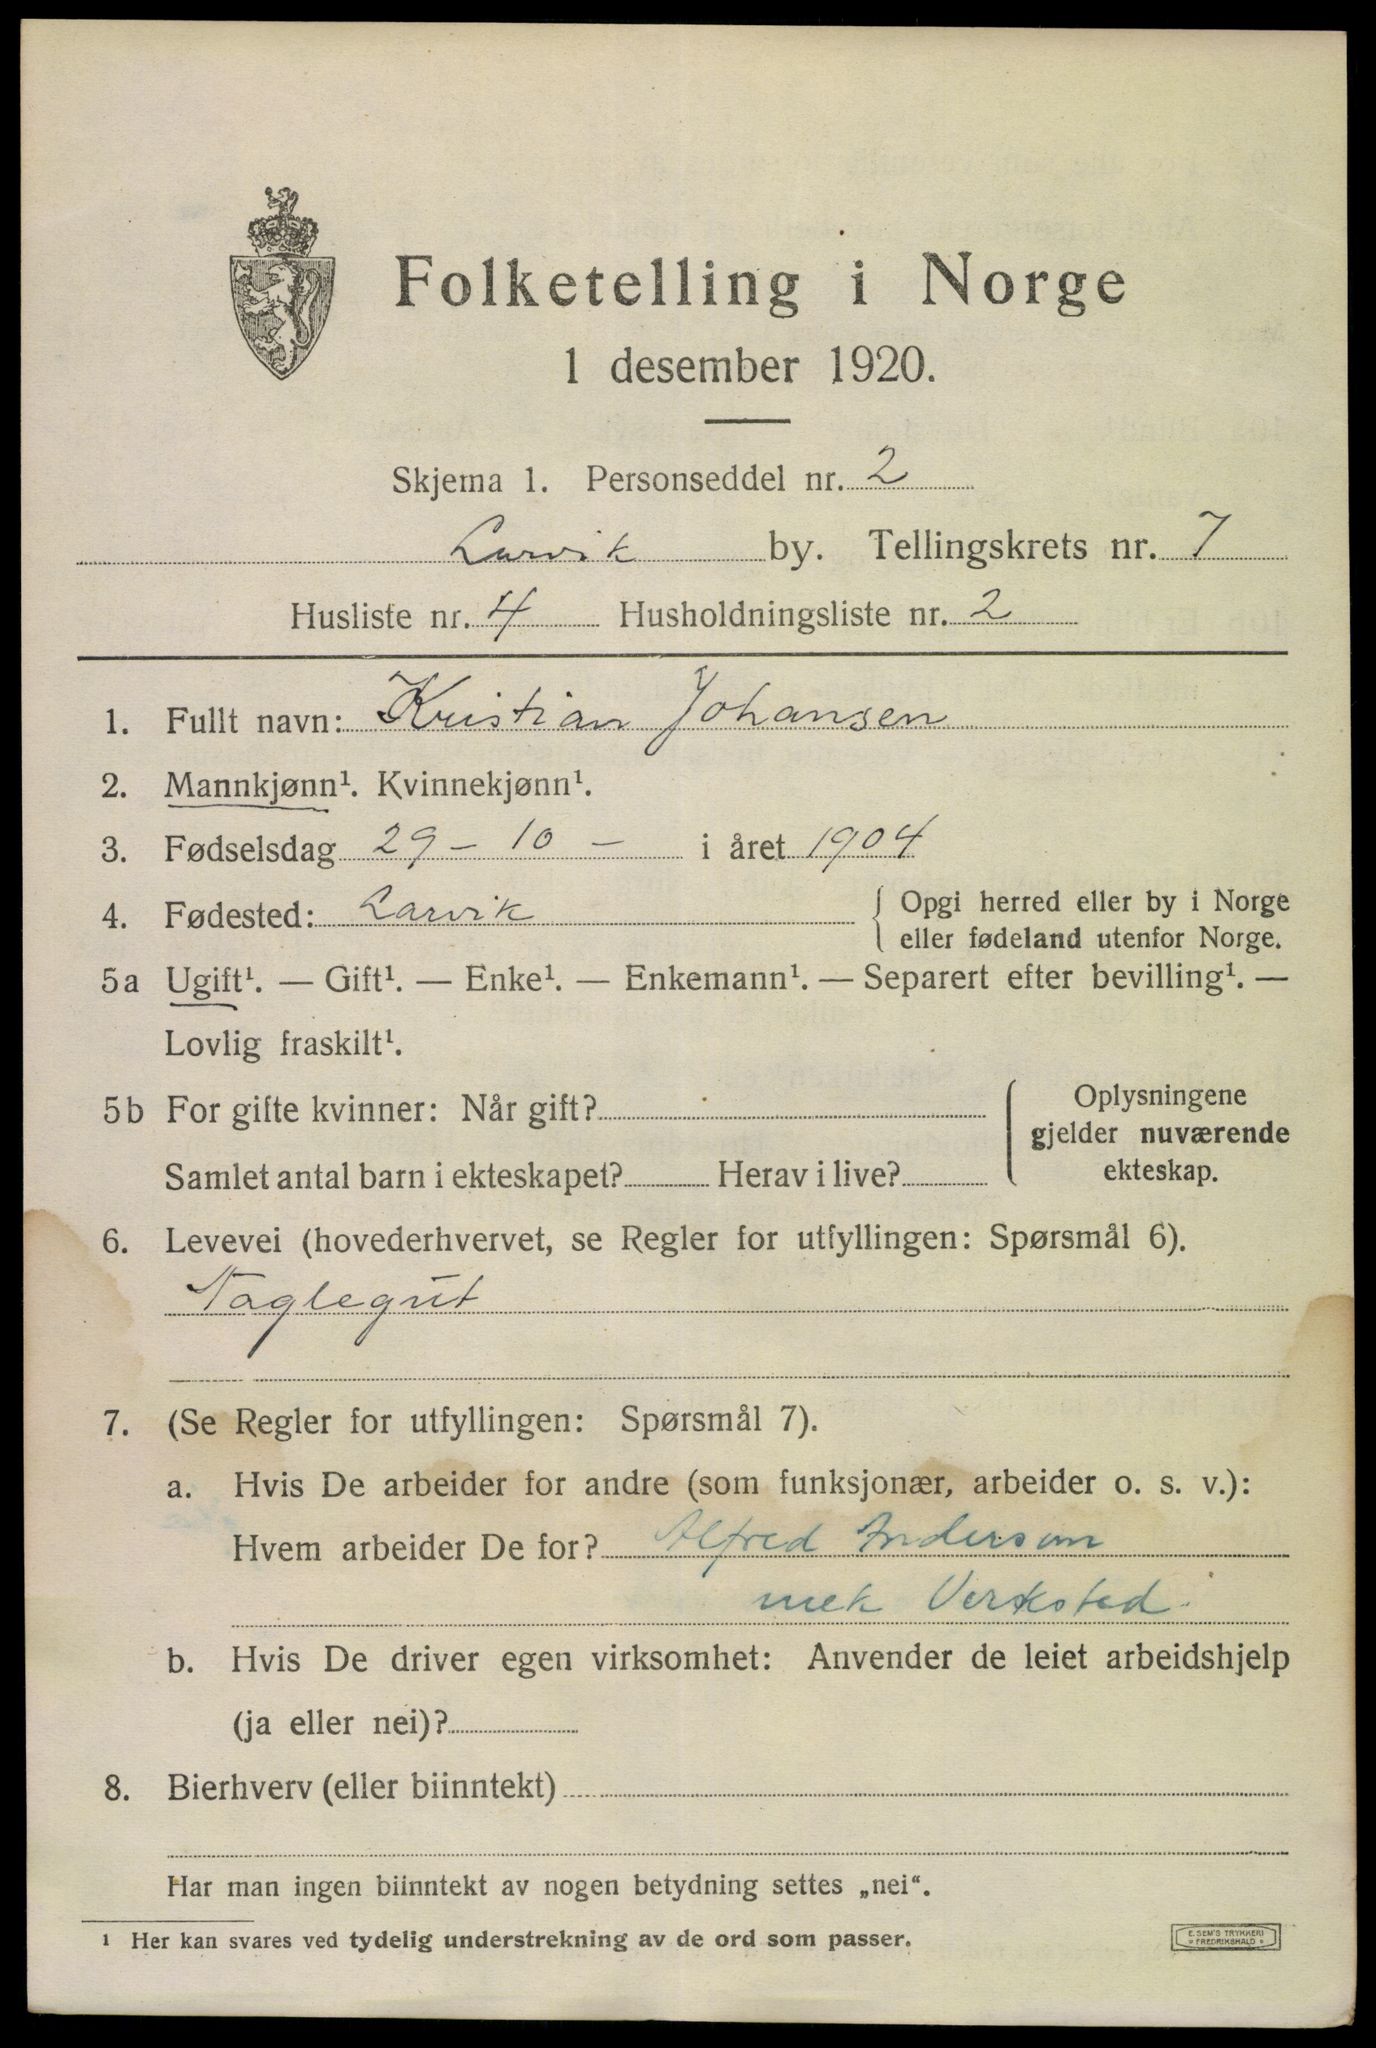 Folketelling i Norge
1 desember 1920.
Skjema 1. Personseddel nr. 2
Larvik by. Tellingskrets nr. 7
Husliste nr. 4 Husholdningsliste nr. 2
1. Fullt navn: Kristian Johansen
2. Mannkjønn¹. Kvinnekjønn¹.
3. Fødselsdag 29 – 10 – i året 1904
4. Fødested: Larvik { Opgi herred eller by i Norge
eller fødeland utenfor Norge.
5a Ugift¹. — Gift¹. — Enke¹. — Enkemann¹. — Separert efter bevilling¹. —
Lovlig fraskilt¹.
5b For gifte kvinner: Når gift? { Oplysningene
gjelder nuværende
Samlet antal barn i ekteskapet? Herav i live? ekteskap.
6. Levevei (hovederhvervet, se Regler for utfyllingen: Spørsmål 6).
Naglegut
7. (Se Regler for utfyllingen: Spørsmål 7).
a. Hvis De arbeider for andre (som funksjonær, arbeider o. s. v.):
Hvem arbeider De for? Alfred Anderson
mek Verksted.
b. Hvis De driver egen virksomhet: Anvender de leiet arbeidshjelp
(ja eller nei)?
8. Bierhverv (eller biinntekt)
Har man ingen biinntekt av nogen betydning settes „nei“.
¹ Her kan svares ved tydelig understrekning av de ord som passer.
E. SEM'S TRYKKERI
FREDRIKSHALD